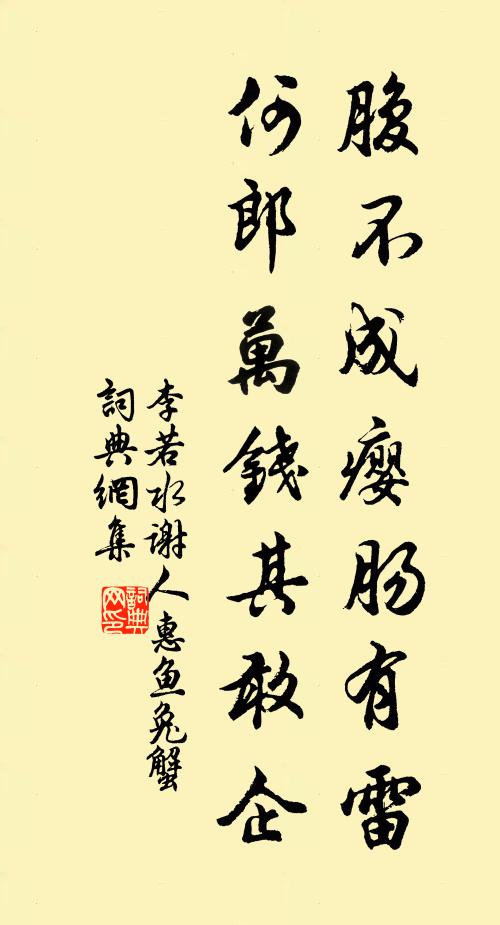 腹不成癭肠有雷
何郎萬錢其敢企
李若水谢人惠鱼兔蟹
詞典網集
詞典网印